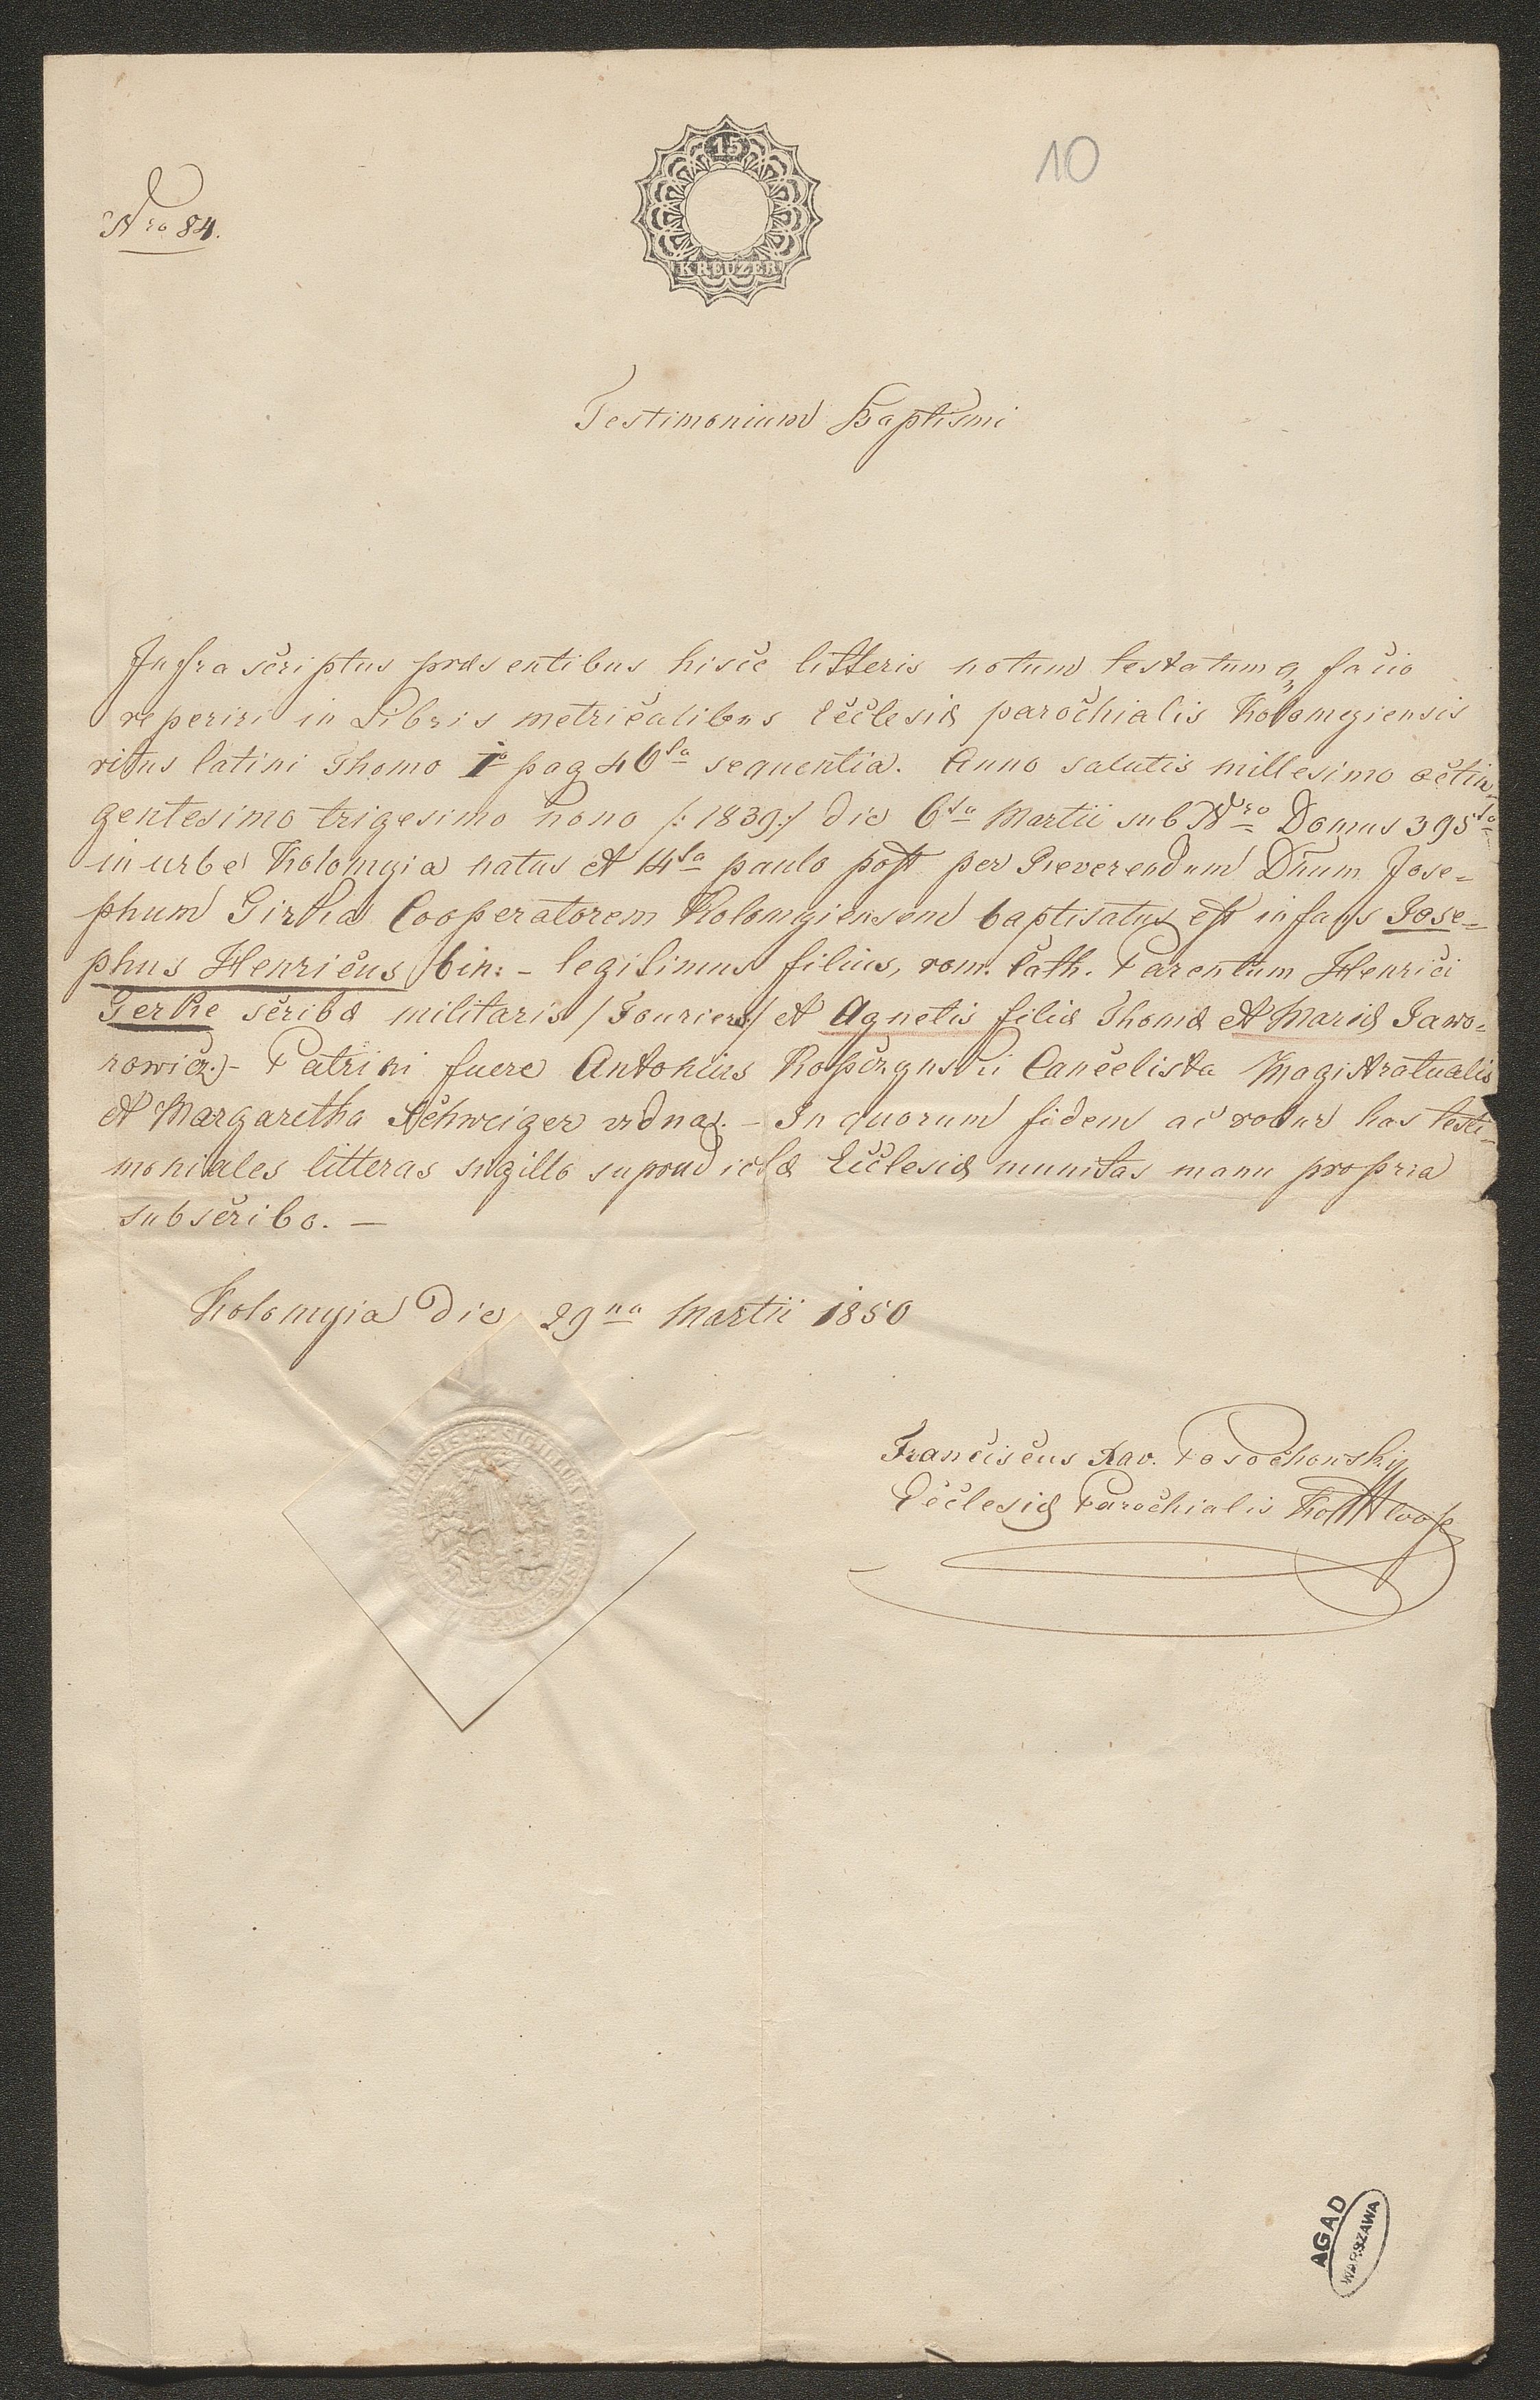 15
KREUZER
10
Nro 84.
Testimonium Baptismi
Infra scriptus præsentibus hisce litteris notum testatumq facio
reperiri in Libris metricalibus Ecclesiæ parochialis Kolomyiensis
ritus latini Thomo Io pag 46ta sequentia. Anno salutis millesimo octin-
gentesimo trigesimo nono /: 1839:/ die 6ta Martii sub Nro Domus 395to
in urbe Kolomyia natus et 14ta paulo post per Reverendum Dnum Jose=
phum Girtka Cooperatorem Kolomyiensem baptisatus est infans Jose=
phus Henricus bin: - legitimus filius, rom. Cath. Parentum Henrici
Gerke scribæ militaris /Fouriers/ et Agnetis filiæ Thomæ et Mariæ Jawo-
rowicz.- Patrini fuere Antonius Ropczynski Cancelista Magistratualis
et Margaretha Schweiger vidua. - In quorum fidem ac robur has testi-
moniales litteras sigillo supradictæ Ecclesiæ munitas manu propria
subscribo. —
Kolomyia die 29na Martii 1850
SIGILLUM ECCLESIÆ
Franciscus Xav.
Ecclesiæ Parochialis
AGAD
WARSZAWA